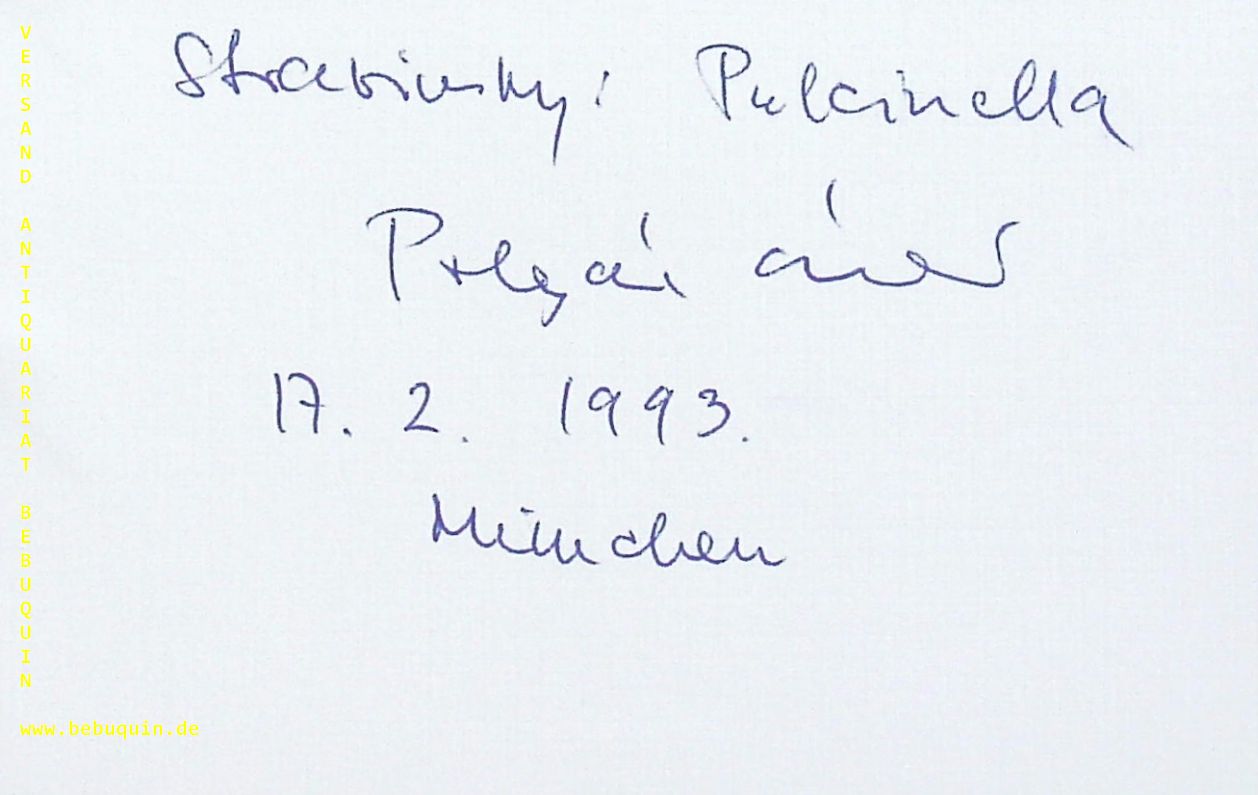 Stravinsky: Pulcinella
Polgár
17. 2. 1993.
München
VERSAND ANTIQUARIAT BEBUQUIN
www.bebuquin.de